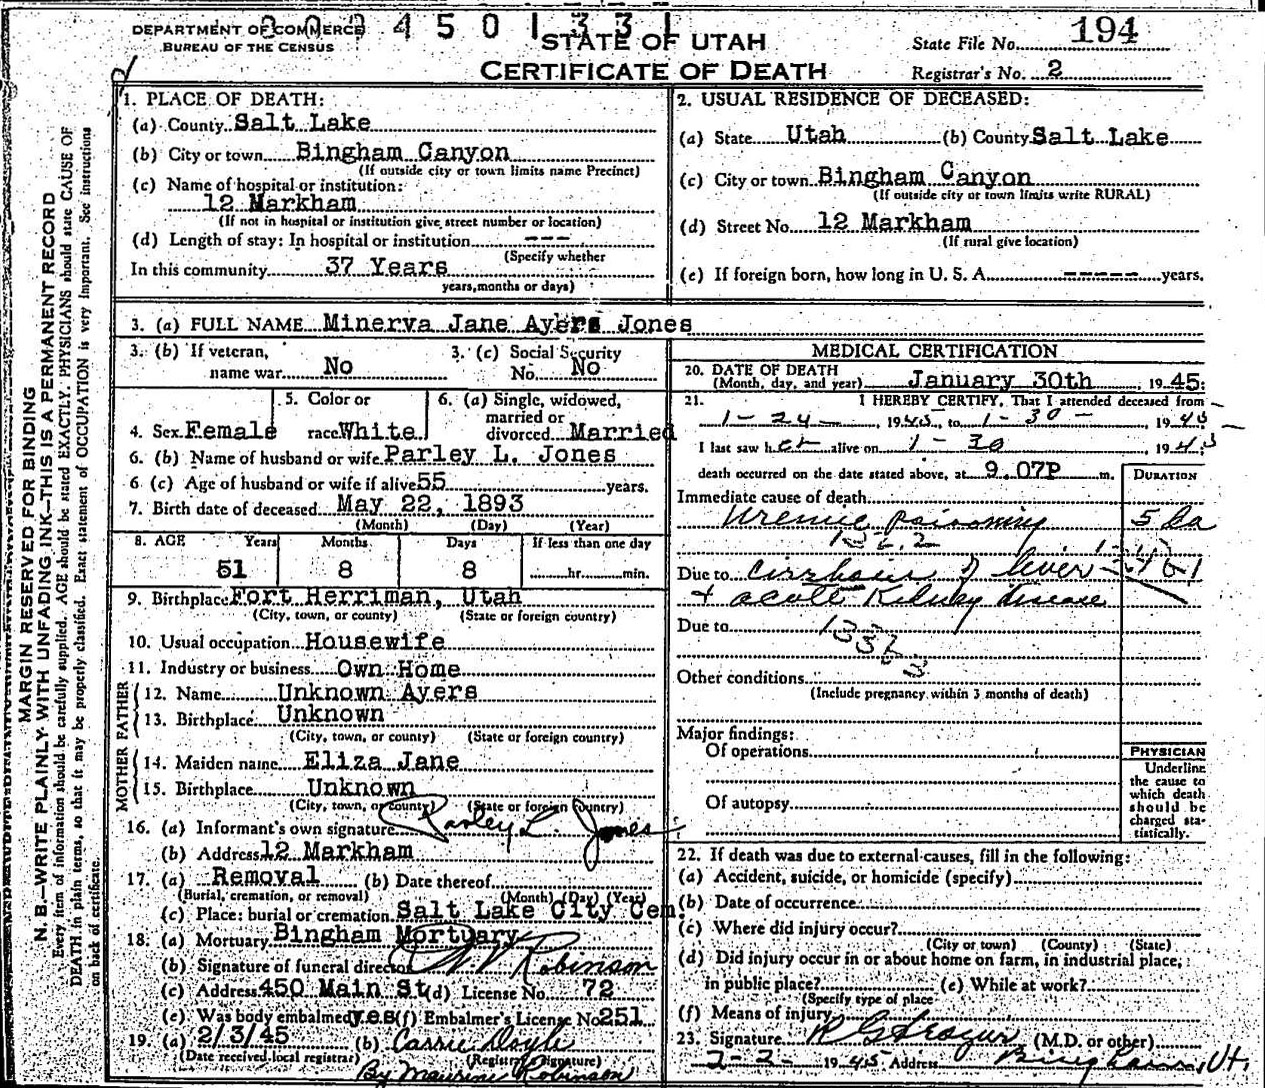 DEPARTMENT OF COMMERCE
BUREAU OF THE CENSUS
STATE OF UTAH
CERTIFICATE OF DEATH
State File No. 194
Registrar's No. 2
MARGIN RESERVED FOR BINDING
N. B.—WRITE PLAINLY WITH UNFADING INK—THIS IS A PERMANENT RECORD
Every item of information should be carefully supplied. AGE should be stated EXACTLY. PHYSICIANS should state CAUSE OF
DEATH in plain terms, so that it may be properly classified. Exact statement of OCCUPATION is very important. See instructions
on back of certificate.
1. PLACE OF DEATH:
(a) County Salt Lake
(b) City or town Bingham Canyon
(If outside city or town limits name Precinct)
(c) Name of hospital or institution:
12 Markham
(If not in hospital or institution give street number or location)
(d) Length of stay: In hospital or institution ---
(Specify whether
In this community 37 Years
years, months or days)
2. USUAL RESIDENCE OF DECEASED:
(a) State Utah (b) County Salt Lake
(c) City or town Bingham Canyon
(If outside city or town limits write RURAL)
(d) Street No. 12 Markham
(If rural give location)
(e) If foreign born, how long in U. S. A. ----- years.
3. (a) FULL NAME Minerva Jane Ayers Jones
3. (b) If veteran,
name war No
3. (c) Social Security
No. No
4. Sex Female
5. Color or
race White
6. (a) Single, widowed,
married or
divorced Married
6. (b) Name of husband or wife Parley L. Jones
6. (c) Age of husband or wife if alive 55 years.
7. Birth date of deceased May 22, 1893
(Month) (Day) (Year)
8. AGE Years Months Days If less than one day
51 8 8 hr. min.
9. Birthplace Fort Herriman, Utah
(City, town, or county) (State or foreign country)
10. Usual occupation Housewife
11. Industry or business Own Home
FATHER
12. Name Unknown Ayers
13. Birthplace Unknown
(City, town, or county) (State or foreign country)
MOTHER
14. Maiden name Eliza Jane
15. Birthplace Unknown
(City, town, or county) (State or foreign country)
16. (a) Informant's own signature Parley L. Jones
(b) Address 12 Markham
17. (a) Removal (b) Date thereof
(Burial, cremation, or removal) (Month) (Day) (Year)
(c) Place: burial or cremation Salt Lake City Cem.
18. (a) Mortuary Bingham Mortuary
(b) Signature of funeral director Robinson
(c) Address 450 Main St (d) License No. 72
(e) Was body embalmed yes (f) Embalmer's License No. 251
19. (a) 2/3/45 (b) Carrie Doyle
(Date received local registrar) (Registrar's signature)
By Maurine Robinson
MEDICAL CERTIFICATION
20. DATE OF DEATH
(Month, day, and year) January 30th, 1945.
21. I HEREBY CERTIFY, That I attended deceased from
1-24-, 1945, to 1-30-, 1945
I last saw her alive on 1-30 1945
death occurred on the date stated above, at 9.07P m.
DURATION
Immediate cause of death
Uremic poisoning 5 da
Due to cirrhosis of liver
+ acute Kidney disease
Due to
Other conditions
(Include pregnancy within 3 months of death)
Major findings:
Of operations
Of autopsy
PHYSICIAN
Underline
the cause to
which death
should be
charged sta-
tistically.
22. If death was due to external causes, fill in the following:
(a) Accident, suicide, or homicide (specify)
(b) Date of occurrence
(c) Where did injury occur?
(City or town) (County) (State)
(d) Did injury occur in or about home on farm, in industrial place,
in public place? (e) While at work?
(Specify type of place
(f) Means of injury
23. Signature (M.D. or other)
2-2- 1945 Address